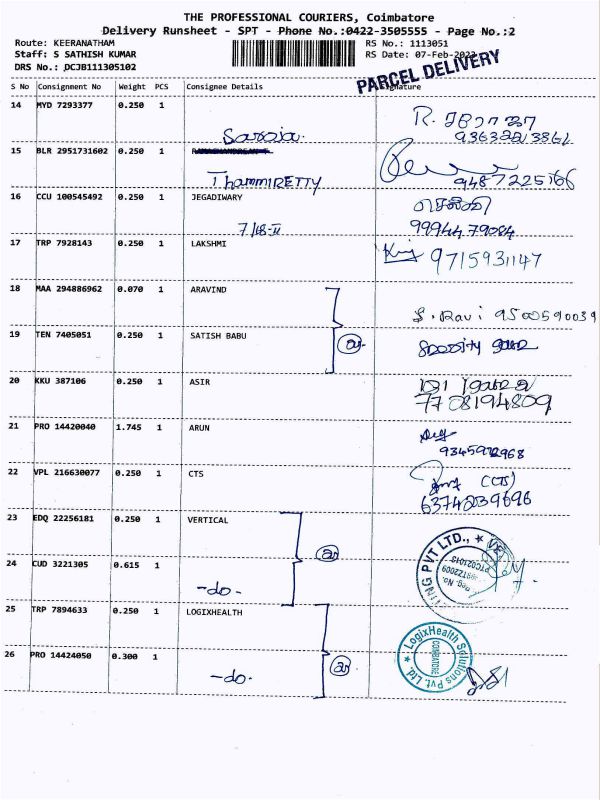 THE PROFESSIONAL COURIERS, Coimbatore
Delivery Runsheet - SPT - Phone No.:0422-3505555 - Page No.:2
Route: KEERANATHAM RS No.: 1113051
Staff: S SATHISH KUMAR RS Date: 07-Feb-2023
DRS No.: DCJB111305102
PARCEL DELIVERY
S No Consignment No Weight PCS Consignee Details Signature
14 MYD 7293377 0.250 1
Saroja.
15 BLR 2951731602 0.250 1
Thammiretty 9487225166
16 CCU 100545492 0.250 1 JEGADIWARY செல்வி
7/48-II 9994479084
17 TRP 7928143 0.250 1 LAKSHMI 9715931147
18 MAA 294886962 0.070 1 ARAVIND
S. Ravi 9500590039
19 TEN 7405051 0.250 1 SATISH BABU
20 KKU 387106 0.250 1 ASIR
7708194809
21 PRO 14420040 1.745 1 ARUN
9345912968
22 VPL 216630077 0.250 1 CTS (CTS)
6374239696
23 EDQ 22256181 0.250 1 VERTICAL
24 CUD 3221305 0.615 1
-do-
25 TRP 7894633 0.250 1 LOGIXHEALTH
LogixHealth Solutions Pvt. Ltd.
COIMBATORE
26 PRO 14424050 0.300 1
-do-